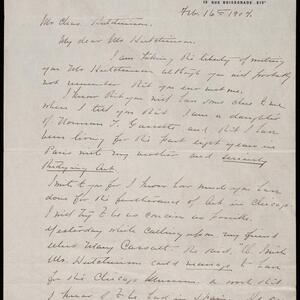 18 RUE BOISSONADE. XIVe
Feb. 16th 1904.
Mr Chas. Hutchinson.
My dear Mr Hutchinson.
I am taking the liberty of writing
you Mr Hutchinson although you will probably
not remember that you ever met me.
I know that you will know close to me
when I tell you that I am a daughter
of Norman T. Gassette, and that I have
been living for the past eight years in
Paris with my mother and seriously
studying Art.
I write to you for I know how much you have
done for the furtherance of Art in Chicago.
I will try to be as concise as possible.
Yesterday while calling upon my friend
Miss Mary Cassatt – she said, "Oh. I wish
Mr. Hutchinson could manage to have
for the Chicago Museum, a work that
I know is to be had in Spain